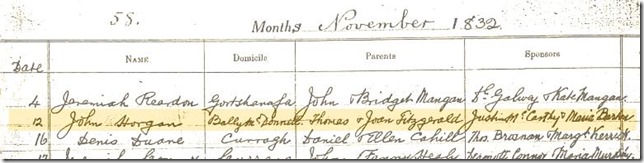 58.
Months November 1832
Date Name Domicile Parents Sponsors
4 Jeremiah Reardon Gortshanafa John & Bridget Mangan D. Galway & Kate Mangan
12 John Horgan Ballymcdonnell Thomas & Joan Fitzgerald Justin McCarthy & Maria Barker
16 Denis Duane Curragh Daniel & Ellen Cahill Thos. Brosnan Margt. Kerrick